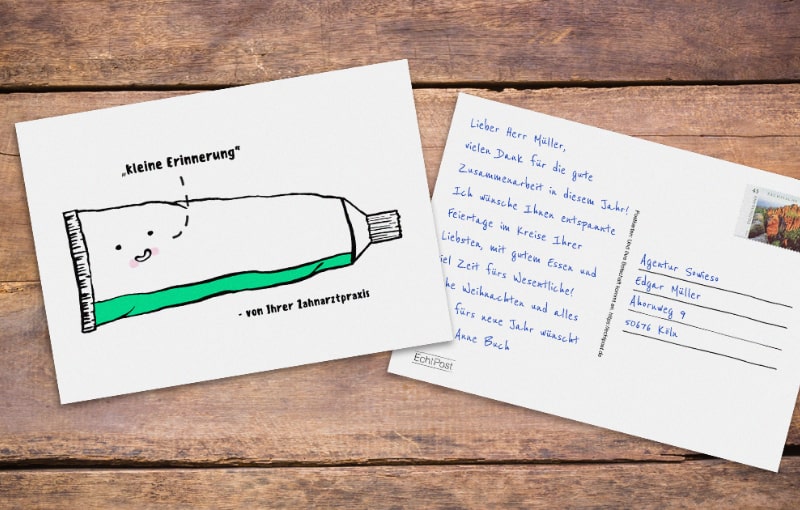 „kleine Erinnerung“
- von Ihrer Zahnarztpraxis
Lieber Herr Müller,
vielen Dank für die gute
Zusammenarbeit in diesem Jahr!
Ich wünsche Ihnen entspannte
Feiertage im Kreise Ihrer
Liebsten, mit gutem Essen und
iel Zeit fürs Wesentliche!
he Weihnachten und alles
fürs neue Jahr wünscht
Anne Buch
EchtPost
Und Ihre Botschaft kommt an. https://echtpost.de
45
Agentur Sowieso
Edgar Müller
Ahornweg 9
50676 Köln